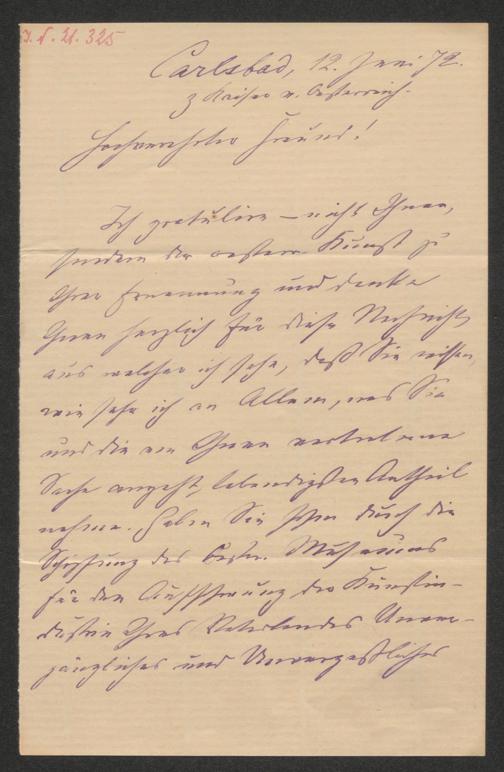 J. N. 21.325
Carlsbad, 12. Juni 72.
z Kaiser v. Oesterreich.
Hochverehrter Freund!
Ich gratulire – nicht Ihnen,
sondern der oesterr. Kunst zu
Ihrer Ernennung und danke
Ihnen herzlich für diese Nachricht,
aus welcher ich sehe, daß Sie wissen,
wie sehr ich an Allem, was Sie
und die von Ihnen vertretene
Sache angeht, lebendigsten Antheil
nehme. Haben Sie schon durch die
Schöpfung des Oester. Museums
für den Aufschwung der Kunstin-
dustrie Ihres Vaterlandes Unver-
gängliches und Unvergeßliches